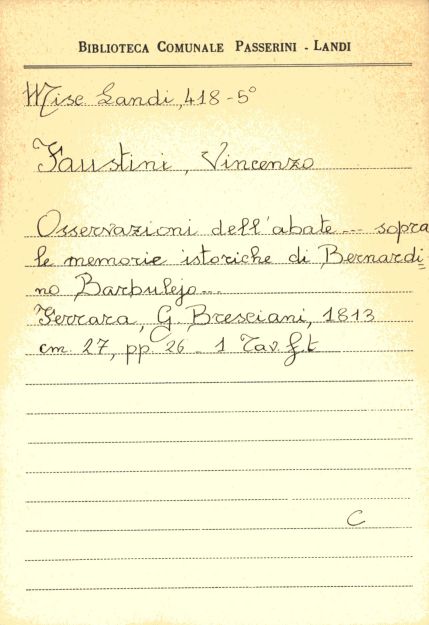 BIBLIOTECA COMUNALE PASSERINI - LANDI
Misc Landi, 418-5°
Faustini, Vincenzo
Osservazioni dell'abate --- sopra
le memorie istoriche di Bernardi=
no Barbulejo...
Ferrara, G. Bresciani, 1813
cm 27, pp 26 - 1 Tav f.t
C